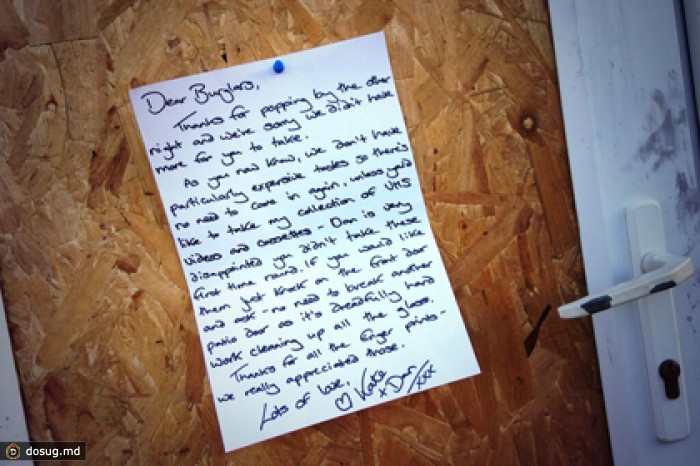 Dear Burglars,
Thanks for popping by the other
night and we're sorry we didn't have
more for you to take.
As you now know, we don't have
particularly expensive tastes so there's
no need to come in again, unless you'd
like to take my collection of VHS
videos and cassettes - Dan is very
disappointed you didn't take these
first time round. If you would like
them just knock on the front door
and ask - no need to break another
patio door as it's dreadfully hard
work cleaning up all the glass.
Thanks for all the finger prints -
we really appreciated those.
Lots of love,
Kate
x Dan/xxx
dosug.md